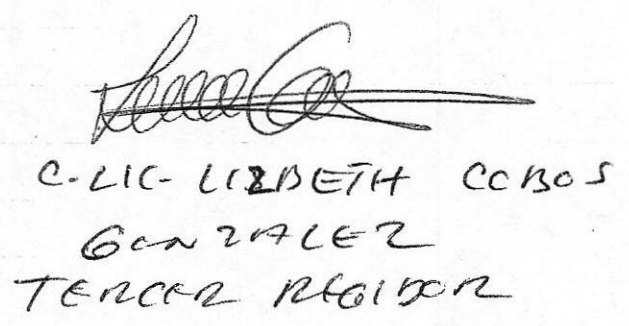 C. LIC. LIZBETH COBOS
GONZALEZ
TERCER REGIDOR